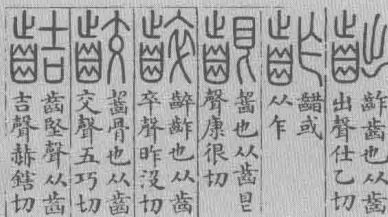 齒也从齒
出聲仕乙切
齚
齰或
从乍
齦
齧也从齒艮
聲康很切
也从齒
卒聲昨沒切
齩
齧骨也从齒
交聲五巧切
齒堅聲从齒
吉聲赫鎋切